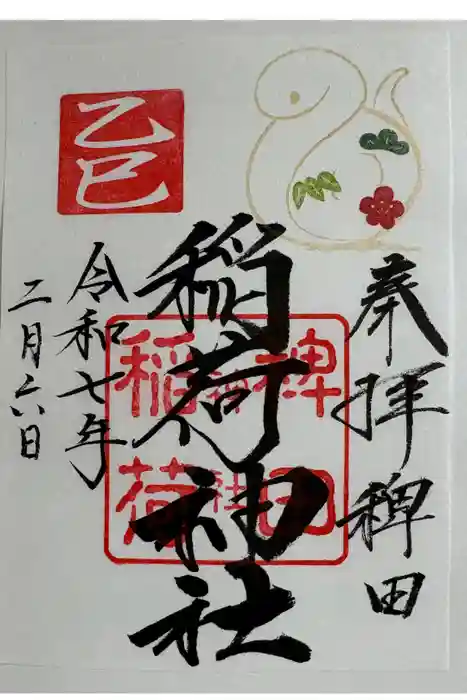 奉拝 稗田
稲荷神社
令和七年
二月六日
乙巳
稗田
稲荷